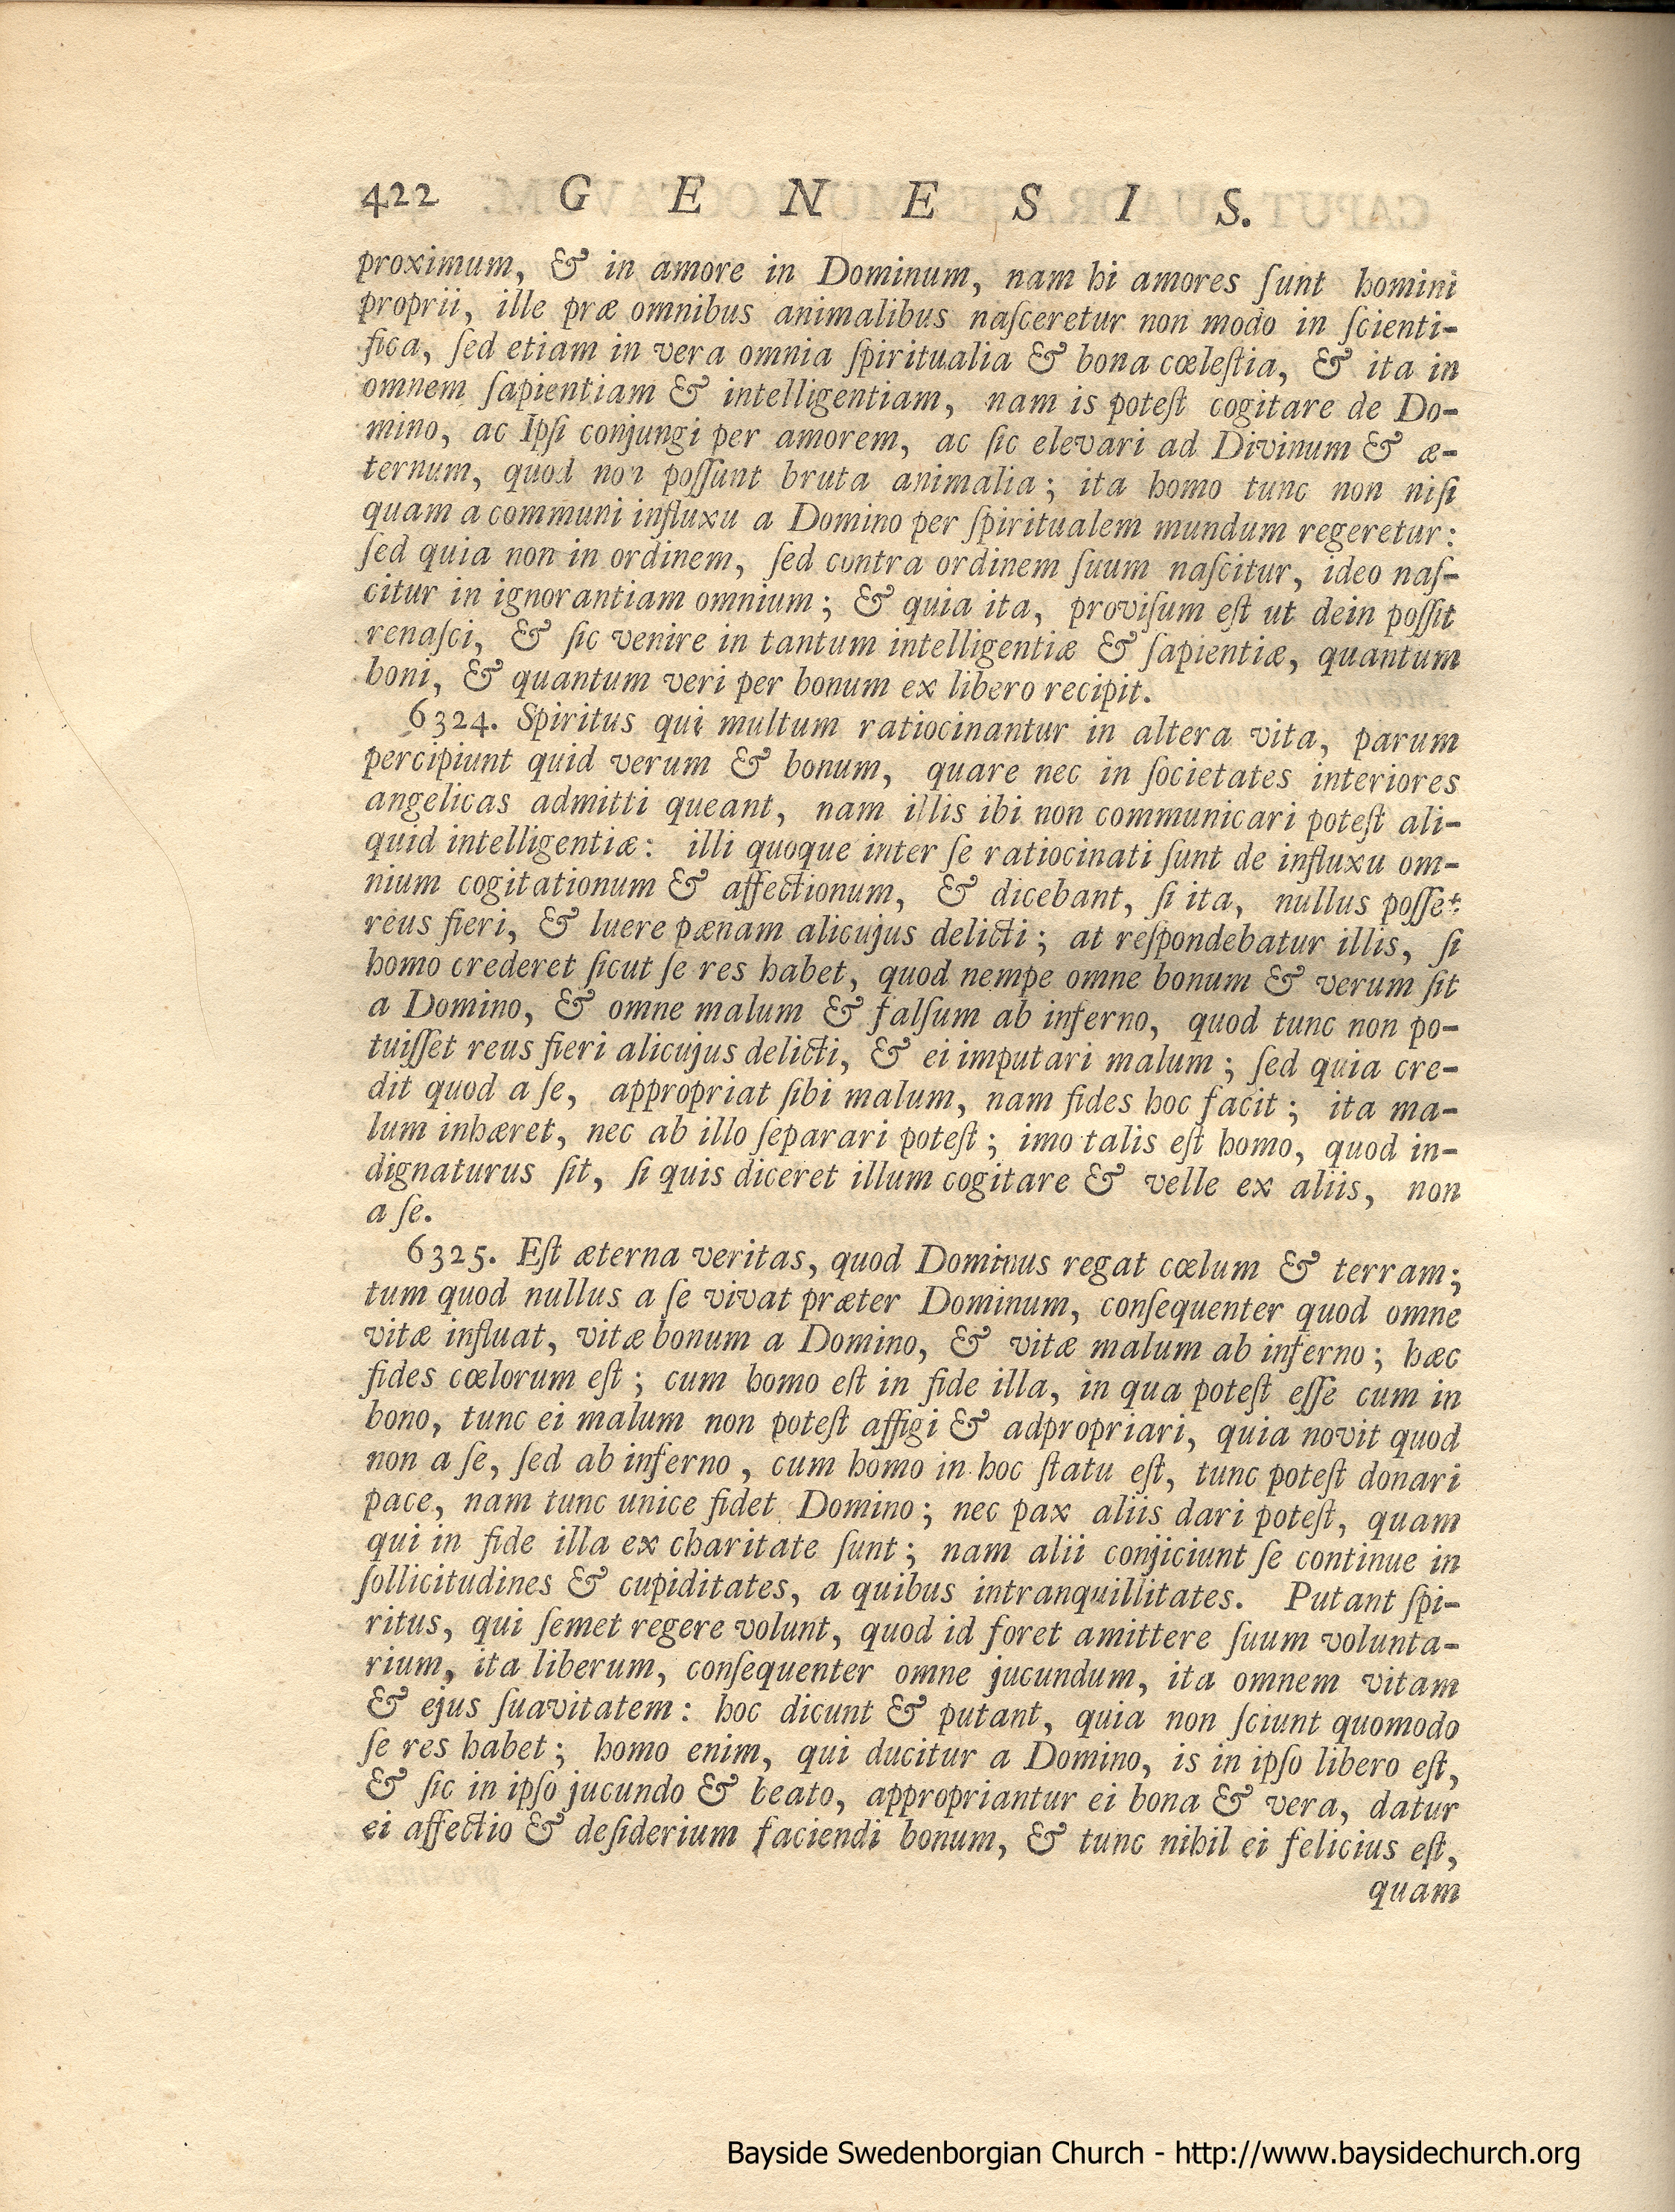 422 G E N E S I S.
proximum, & in amore in Dominum, nam hi amores ſunt homini
proprii, ille præ omnibus animalibus naſceretur non modo in ſcienti-
fica, ſed etiam in vera omnia ſpiritualia & bona cœleſtia, & ita in
omnem ſapientiam & intelligentiam, nam is poteſt cogitare de Do-
mino, ac Ipſi conjungi per amorem, ac ſic elevari ad Divinum & æ-
ternum, quod non poſſunt bruta animalia; ita homo tunc non niſi
quam a communi influxu a Domino per ſpiritualem mundum regeretur:
ſed quia non in ordinem, ſed contra ordinem ſuum naſcitur, ideo naſ-
citur in ignorantiam omnium; & quia ita, proviſum eſt ut dein poſſit
renaſci, & ſic venire in tantum intelligentiæ & ſapientiæ, quantum
boni, & quantum veri per bonum ex libero recipit.
6324. Spiritus qui multum ratiocinantur in altera vita, parum
percipiunt quid verum & bonum, quare nec in ſocietates interiores
angelicas admitti queant, nam illis ibi non communicari poteſt ali-
quid intelligentiæ: illi quoque inter ſe ratiocinati ſunt de influxu om-
nium cogitationum & affectionum, & dicebant, ſi ita, nullus poſſet
reus fieri, & luere pœnam alicujus delicti; at reſpondebatur illis, ſi
homo crederet ſicut ſe res habet, quod nempe omne bonum & verum ſit
a Domino, & omne malum & falſum ab inferno, quod tunc non po-
tuiſſet reus fieri alicujus delicti, & ei imputari malum; ſed quia cre-
dit quod a ſe, appropriat ſibi malum, nam fides hoc facit; ita ma-
lum inhæret, nec ab illo ſeparari poteſt; imo talis eſt homo, quod in-
dignaturus ſit, ſi quis diceret illum cogitare & velle ex aliis, non
a ſe.
6325. Eſt æterna veritas, quod Dominus regat cœlum & terram;
tum quod nullus a ſe vivat præter Dominum, conſequenter quod omne
vitæ influat, vitæ bonum a Domino, & vitæ malum ab inferno; hæc
fides cœlorum eſt; cum homo eſt in fide illa, in qua poteſt eſſe cum in
bono, tunc ei malum non poteſt affigi & adpropriari, quia novit quod
non a ſe, ſed ab inferno, cum homo in hoc ſtatu eſt, tunc poteſt donari
pace, nam tunc unice fidet Domino; nec pax aliis dari poteſt, quam
qui in fide illa ex charitate ſunt; nam alii conjiciunt ſe continue in
ſollicitudines & cupiditates, a quibus intranquillitates. Putant ſpi-
ritus, qui ſemet regere volunt, quod id foret amittere ſuum volunta-
rium, ita liberum, conſequenter omne jucundum, ita omnem vitam
& ejus ſuavitatem: hoc dicunt & putant, quia non ſciunt quomodo
ſe res habet; homo enim, qui ducitur a Domino, is in ipſo libero eſt,
& ſic in ipſo jucundo & beato, appropriantur ei bona & vera, datur
ei affectio & deſiderium faciendi bonum, & tunc nihil ei felicius eſt,
quam
Bayside Swedenborgian Church - http://www.baysidechurch.org